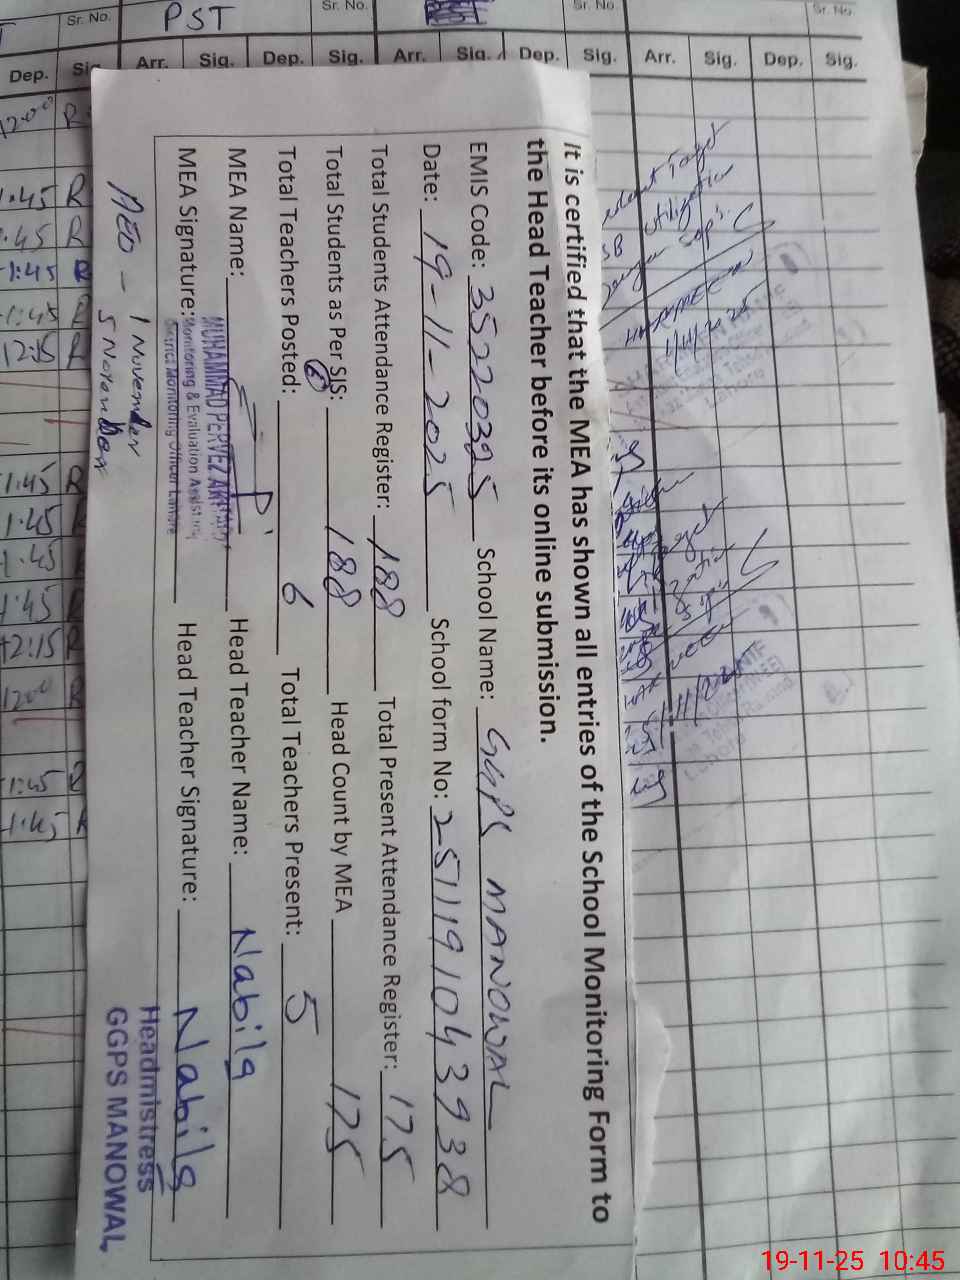 Sr. No. PST Sr. No. Sr. No. Sr. No.
Dep. Sig. Arr. Sig. Dep. Sig. Arr. Sig. Dep. Sig. Arr. Sig. Dep. Sig.
It is certified that the MEA has shown all entries of the School Monitoring Form to
the Head Teacher before its online submission.
EMIS Code: 35220325 School Name: GGPS MANOWAL
Date: 19-11-2025 School form No: 2511191043938
Total Students Attendance Register: 188 Total Present Attendance Register: 175
Total Students as Per SIS: 188 Head Count by MEA 175
Total Teachers Posted: 6 Total Teachers Present: 5
MEA Name: MUHAMMAD PERVEZ Head Teacher Name: Nabila
MEA Signature: Monitoring & Evaluation Assistant Head Teacher Signature: Nabila
District Monitoring Officer Lahore
Headmistress
GGPS MANOWAL
1 November
5 November
12:00 R
1:45 R
1:45 R
1:45 R
1:45 R
12:15 R
1:45 R
1:45 R
1:45
1:45 R
12:15 R
12:00 R
1:45 R
1:45 R
19-11-25 10:45